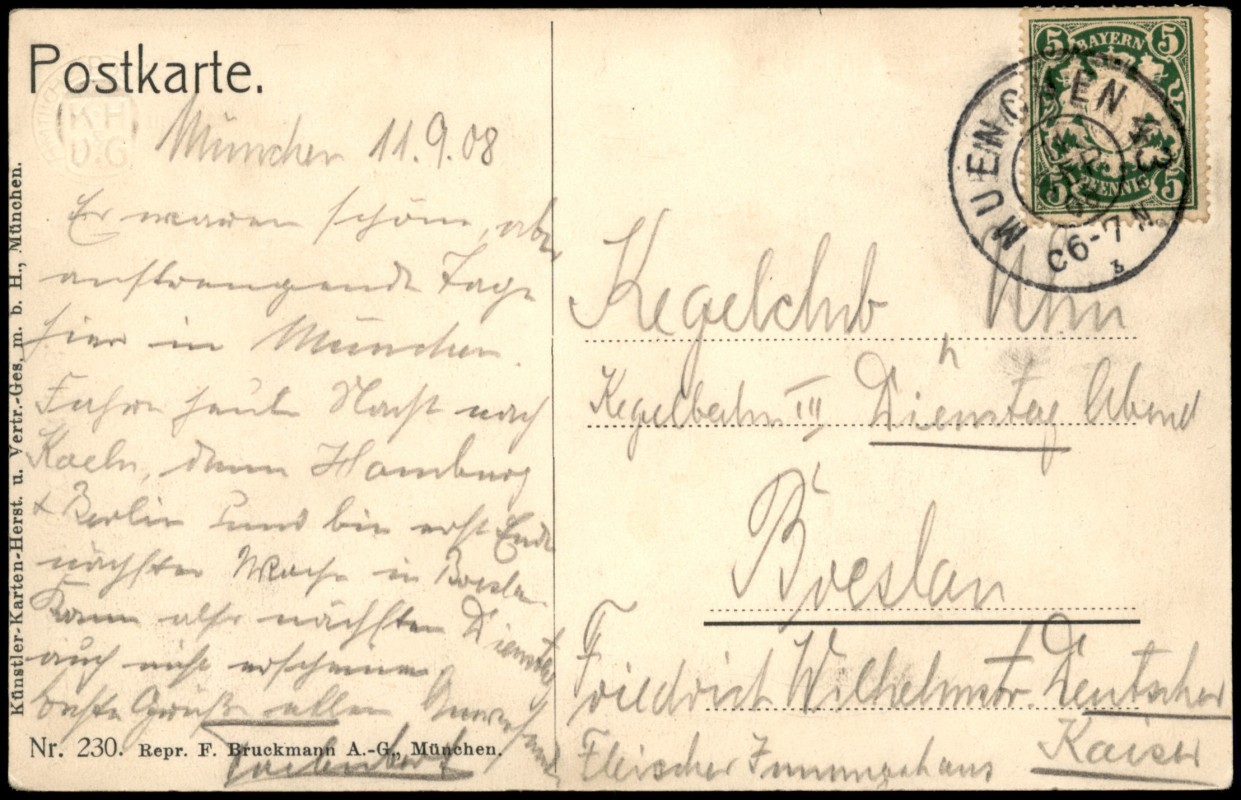 Postkarte.
München 11.9.08
Es waren schöne, aber
anstrengende Tage
hier in München.
Fahre heute Nacht nach
Koeln, dann Hamburg
+ Berlin und bin erst Ende
nächster Woche in Breslau
Kann also nächsten Dienstag
auch nicht erscheinen
beste Grüße allen
Nr. 230. Repr. F. Bruckmann A.-G., München.
Künstler-Karten-Herst. u. Vertr.-Ges. m. b. H., München.
KH
V.G
5 BAYERN 5
5 PFENNIG 5
MUENCHEN 43
6-7 N
Kegelclub
Kegelbahn III Dienstag Abend
Breslau
Friedrich Wilhelmstr. Deutscher
Kaiser
Fleischer Innungshaus